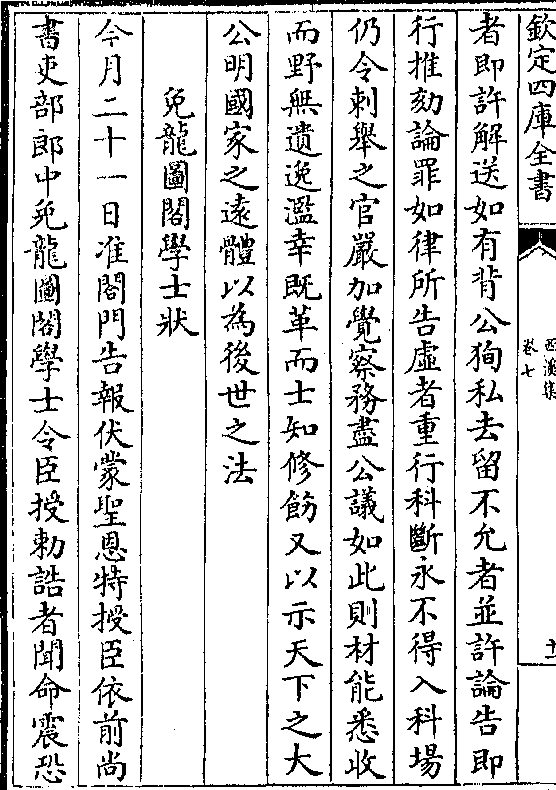 欽定四庫全書
西溪集
卷七
十
者即許解送如有背公狥私去留不允者並許論告即
行推劾論罪如律所告虛者重行科斷永不得入科場
仍令刺舉之官嚴加覺察務盡公議如此則材能悉收
而野無遺逸濫幸既革而士知修飭又以示天下之大
公明國家之遠體以為後世之法
免龍圖閣學士狀
今月二十一日准閤門告報伏蒙聖恩特授臣依前尚
書吏部郎中充龍圖閣學士令臣授勅誥者聞命震恐